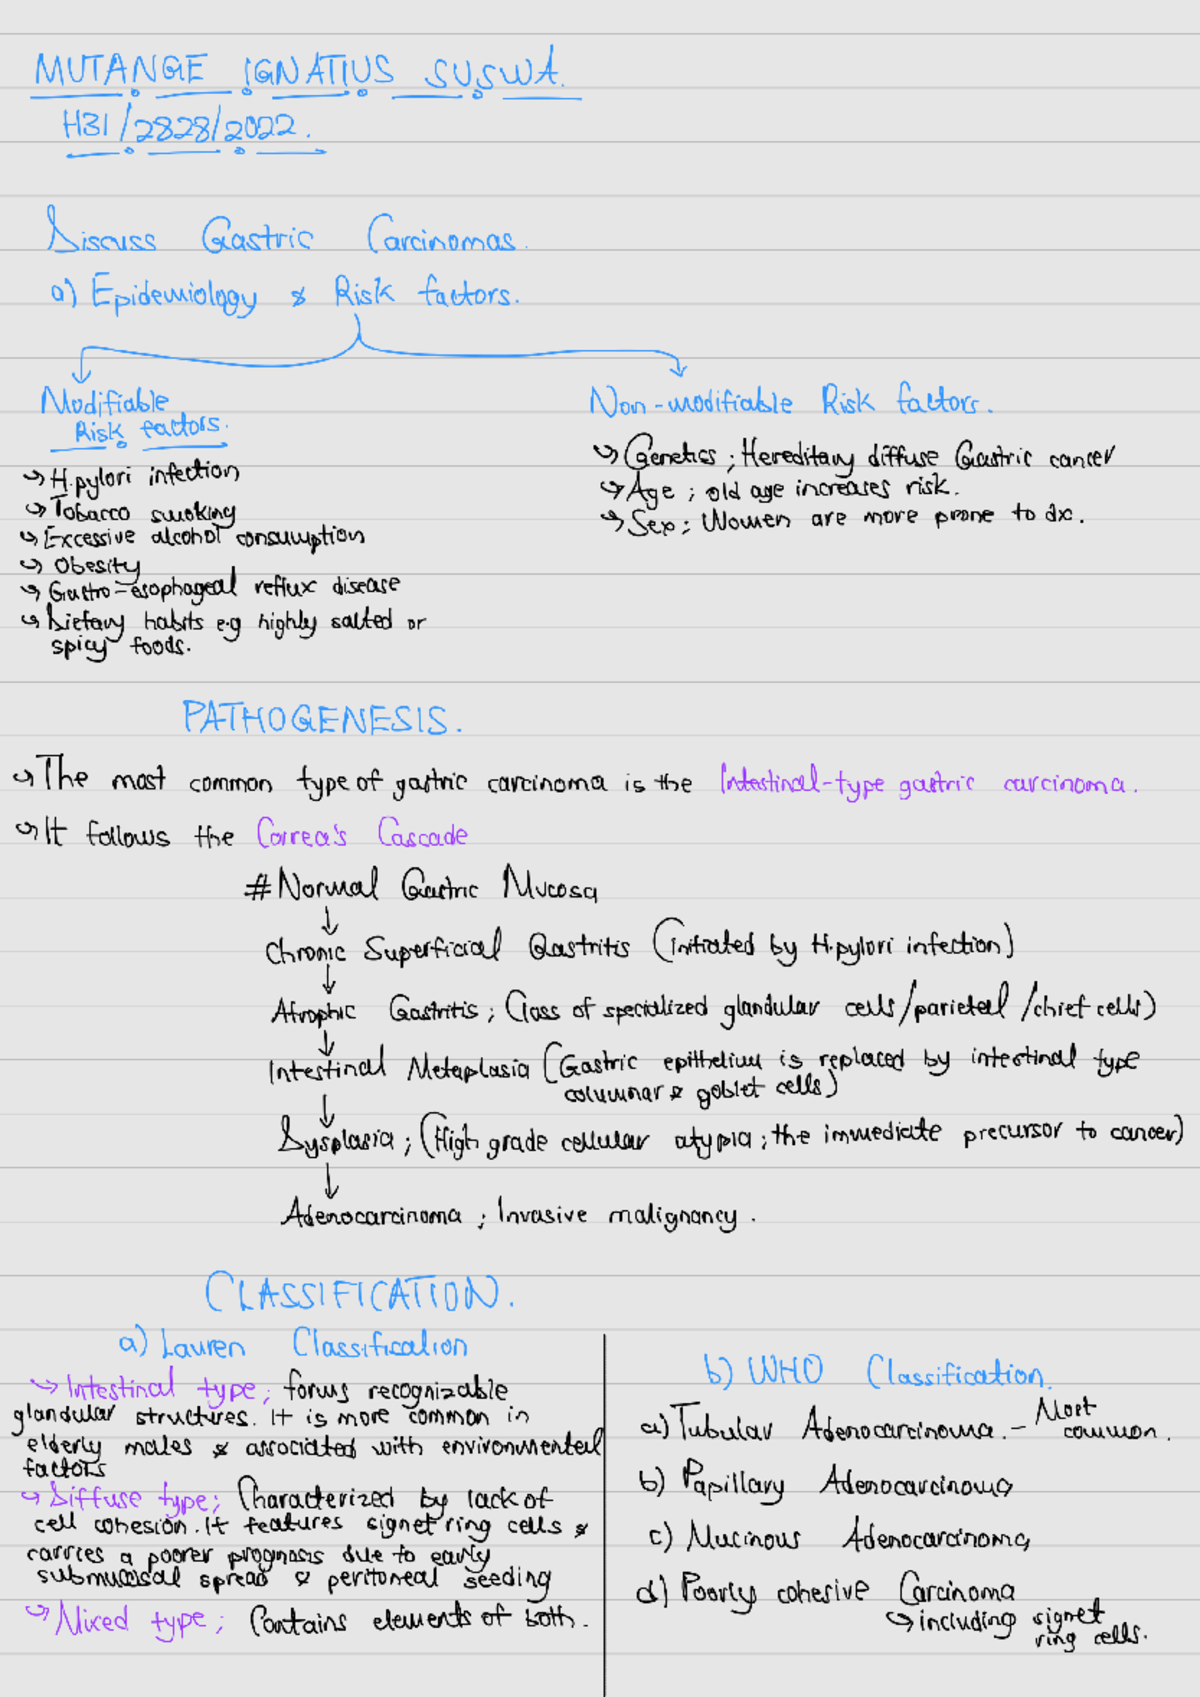 MUTANGE IGNATIUS SUSWA.
H31/2828/2022.
Discuss Gastric Carcinomas.
a) Epidemiology & Risk factors.
Modifiable
Risk factors.
↪ H.pylori infection
↪ Tobacco smoking
↪ Excessive alcohol consumption
↪ Obesity
↪ Gastro-esophageal reflux disease
↪ Dietary habits e.g highly salted or
spicy foods.
Non-modifiable Risk factors.
↪ Genetics ; Hereditary diffuse Gastric cancer
↪ Age ; old age increases risk.
↪ Sex ; Women are more prone to dx.
PATHOGENESIS.
↪ The most common type of gastric carcinoma is the Intestinal-type gastric carcinoma.
↪ It follows the Correa's Cascade
# Normal Gastric Mucosa
↓
Chronic Superficial Gastritis (initiated by H.pylori infection)
↓
Atrophic Gastritis ; (loss of specialized glandular cells/parietal/chief cells)
↓
Intestinal Metaplasia (Gastric epithelium is replaced by intestinal type
columnar & goblet cells)
↓
Dysplasia ; (High grade cellular atypia ; the immediate precursor to cancer)
↓
Adenocarcinoma ; Invasive malignancy.
CLASSIFICATION.
a) Lauren Classification
↪ Intestinal type ; forms recognizable
glandular structures. It is more common in
elderly males & associated with environmental
factors
↪ Diffuse type ; Characterized by lack of
cell cohesion. It features signet ring cells &
carries a poorer prognosis due to early
submucosal spread & peritoneal seeding
↪ Mixed type ; Contains elements of both.
b) WHO Classification.
a) Tubular Adenocarcinoma. - Most
common.
b) Papillary Adenocarcinoma
c) Mucinous Adenocarcinoma
d) Poorly cohesive Carcinoma
↪ including signet
ring cells.